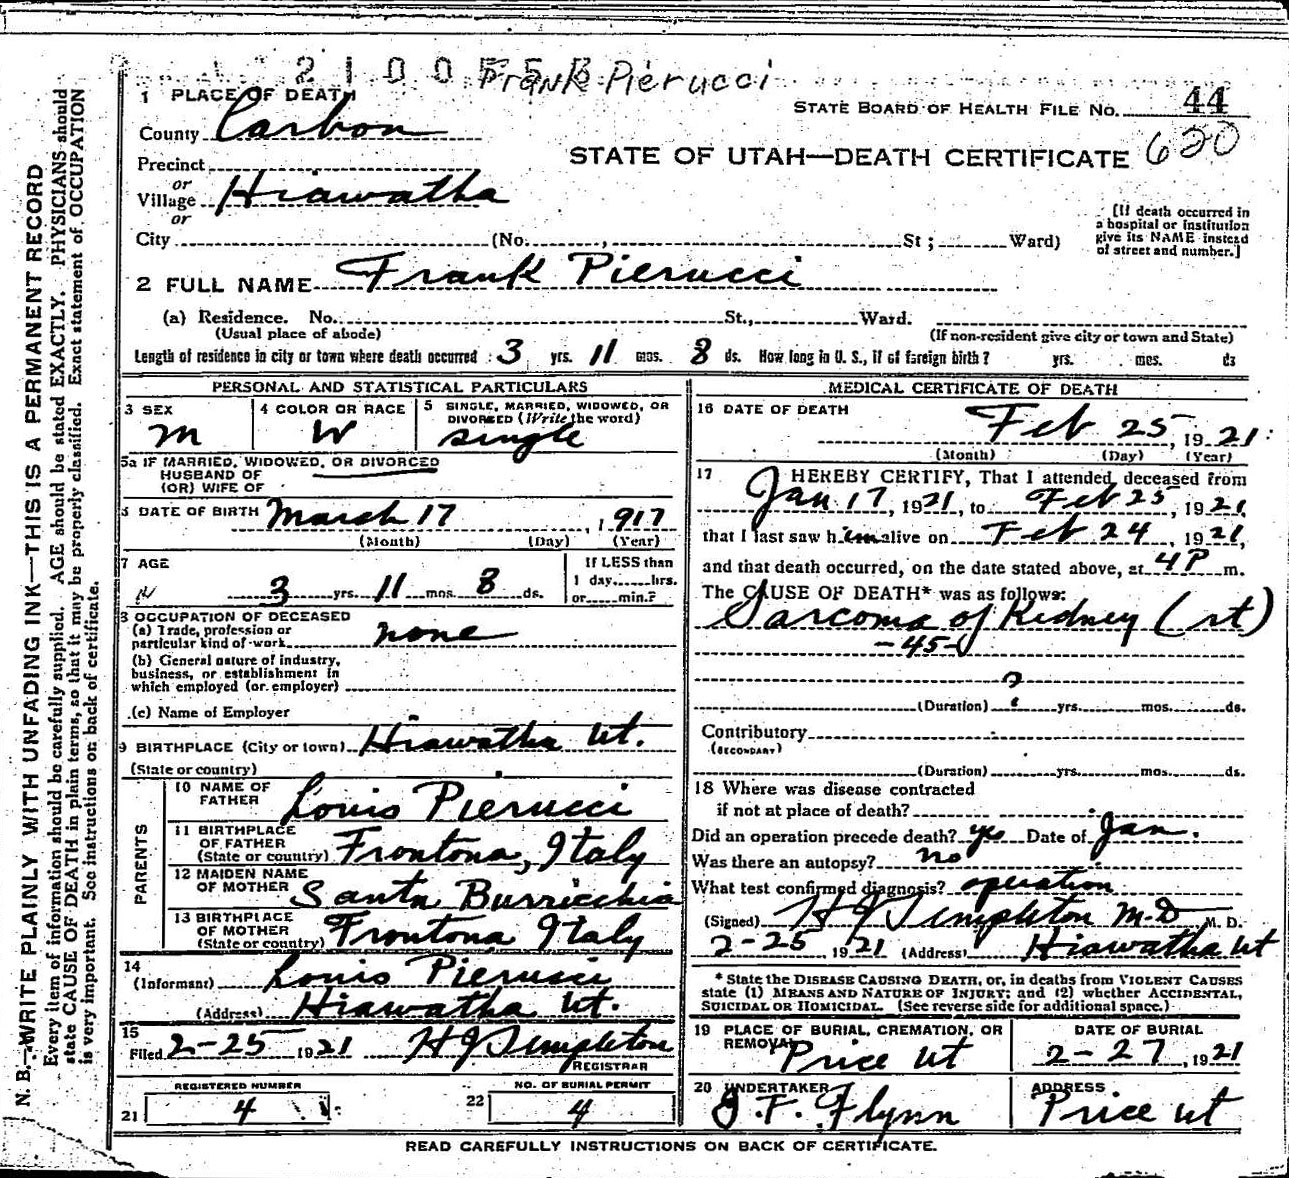 2100555 Frank Pierucci
1 PLACE OF DEATH
STATE BOARD OF HEALTH FILE NO. 44
County Carbon
620
STATE OF UTAH—DEATH CERTIFICATE
Precinct
or
Village Hiawatha
or
City (No. , St ; Ward)
[If death occurred in
a hospital or institution
give its NAME instead
of street and number.]
2 FULL NAME Frank Pierucci
(a) Residence. No. St., Ward.
(Usual place of abode) (If non-resident give city or town and State)
Length of residence in city or town where death occurred 3 yrs. 11 mos. 8 ds. How long in U. S., if of foreign birth? yrs. mos. ds
PERSONAL AND STATISTICAL PARTICULARS
3 SEX
M
4 COLOR OR RACE
W
5 SINGLE, MARRIED, WIDOWED, OR
DIVORCED (Write the word)
single
5a IF MARRIED, WIDOWED, OR DIVORCED
HUSBAND OF
(OR) WIFE OF
6 DATE OF BIRTH March 17, 1917
(Month) (Day) (Year)
7 AGE
3 yrs. 11 mos. 8 ds.
If LESS than
1 day......hrs.
or......min.?
8 OCCUPATION OF DECEASED
(a) Trade, profession or
particular kind of work none
(b) General nature of industry,
business, or establishment in
which employed (or employer)
(c) Name of Employer
9 BIRTHPLACE (City or town) Hiawatha Ut.
(State or country)
PARENTS
10 NAME OF
FATHER Louis Pierucci
11 BIRTHPLACE
OF FATHER
(State or country) Frontona, Italy
12 MAIDEN NAME
OF MOTHER Santa Burricchia
13 BIRTHPLACE
OF MOTHER
(State or country) Frontona Italy
14
(Informant) Louis Pierucci
(Address) Hiawatha Ut.
15
Filed 2-25 1921 H J Templeton
REGISTRAR
REGISTERED NUMBER
21 4
NO. OF BURIAL PERMIT
22 4
MEDICAL CERTIFICATE OF DEATH
16 DATE OF DEATH
Feb 25, 1921
(Month) (Day) (Year)
17 I HEREBY CERTIFY, That I attended deceased from
Jan 17, 1921, to Feb 25, 1921,
that I last saw him alive on Feb 24, 1921,
and that death occurred, on the date stated above, at 4P m.
The CAUSE OF DEATH* was as follows:
Sarcoma of Kidney (rt)
-45-
?
(Duration) yrs. mos. ds.
Contributory
(SECONDARY)
(Duration) yrs. mos. ds.
18 Where was disease contracted
if not at place of death?
Did an operation precede death? yes Date of Jan.
Was there an autopsy? no
What test confirmed diagnosis? operation
(Signed) H J Templeton M.D M. D.
2-25 1921 (Address) Hiawatha Ut
* State the DISEASE CAUSING DEATH, or, in deaths from VIOLENT CAUSES
state (1) MEANS AND NATURE OF INJURY; and (2) whether ACCIDENTAL,
SUICIDAL OR HOMICIDAL. (See reverse side for additional space.)
19 PLACE OF BURIAL, CREMATION, OR
REMOVAL
Price Ut
DATE OF BURIAL
2-27, 1921
20 UNDERTAKER
J. F. Flynn
ADDRESS
Price Ut
READ CAREFULLY INSTRUCTIONS ON BACK OF CERTIFICATE.
N. B.—WRITE PLAINLY WITH UNFADING INK—THIS IS A PERMANENT RECORD
Every item of information should be carefully supplied. AGE should be stated EXACTLY. PHYSICIANS should
state CAUSE OF DEATH in plain terms, so that it may be properly classified. Exact statement of OCCUPATION
is very important. See instructions on back of certificate.